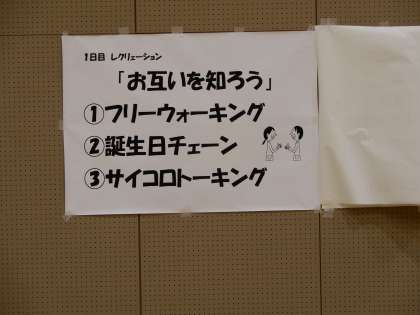 1日目 レクリェーション
「お互いを知ろう」
①フリーウォーキング
②誕生日チェーン
③サイコロトーキング